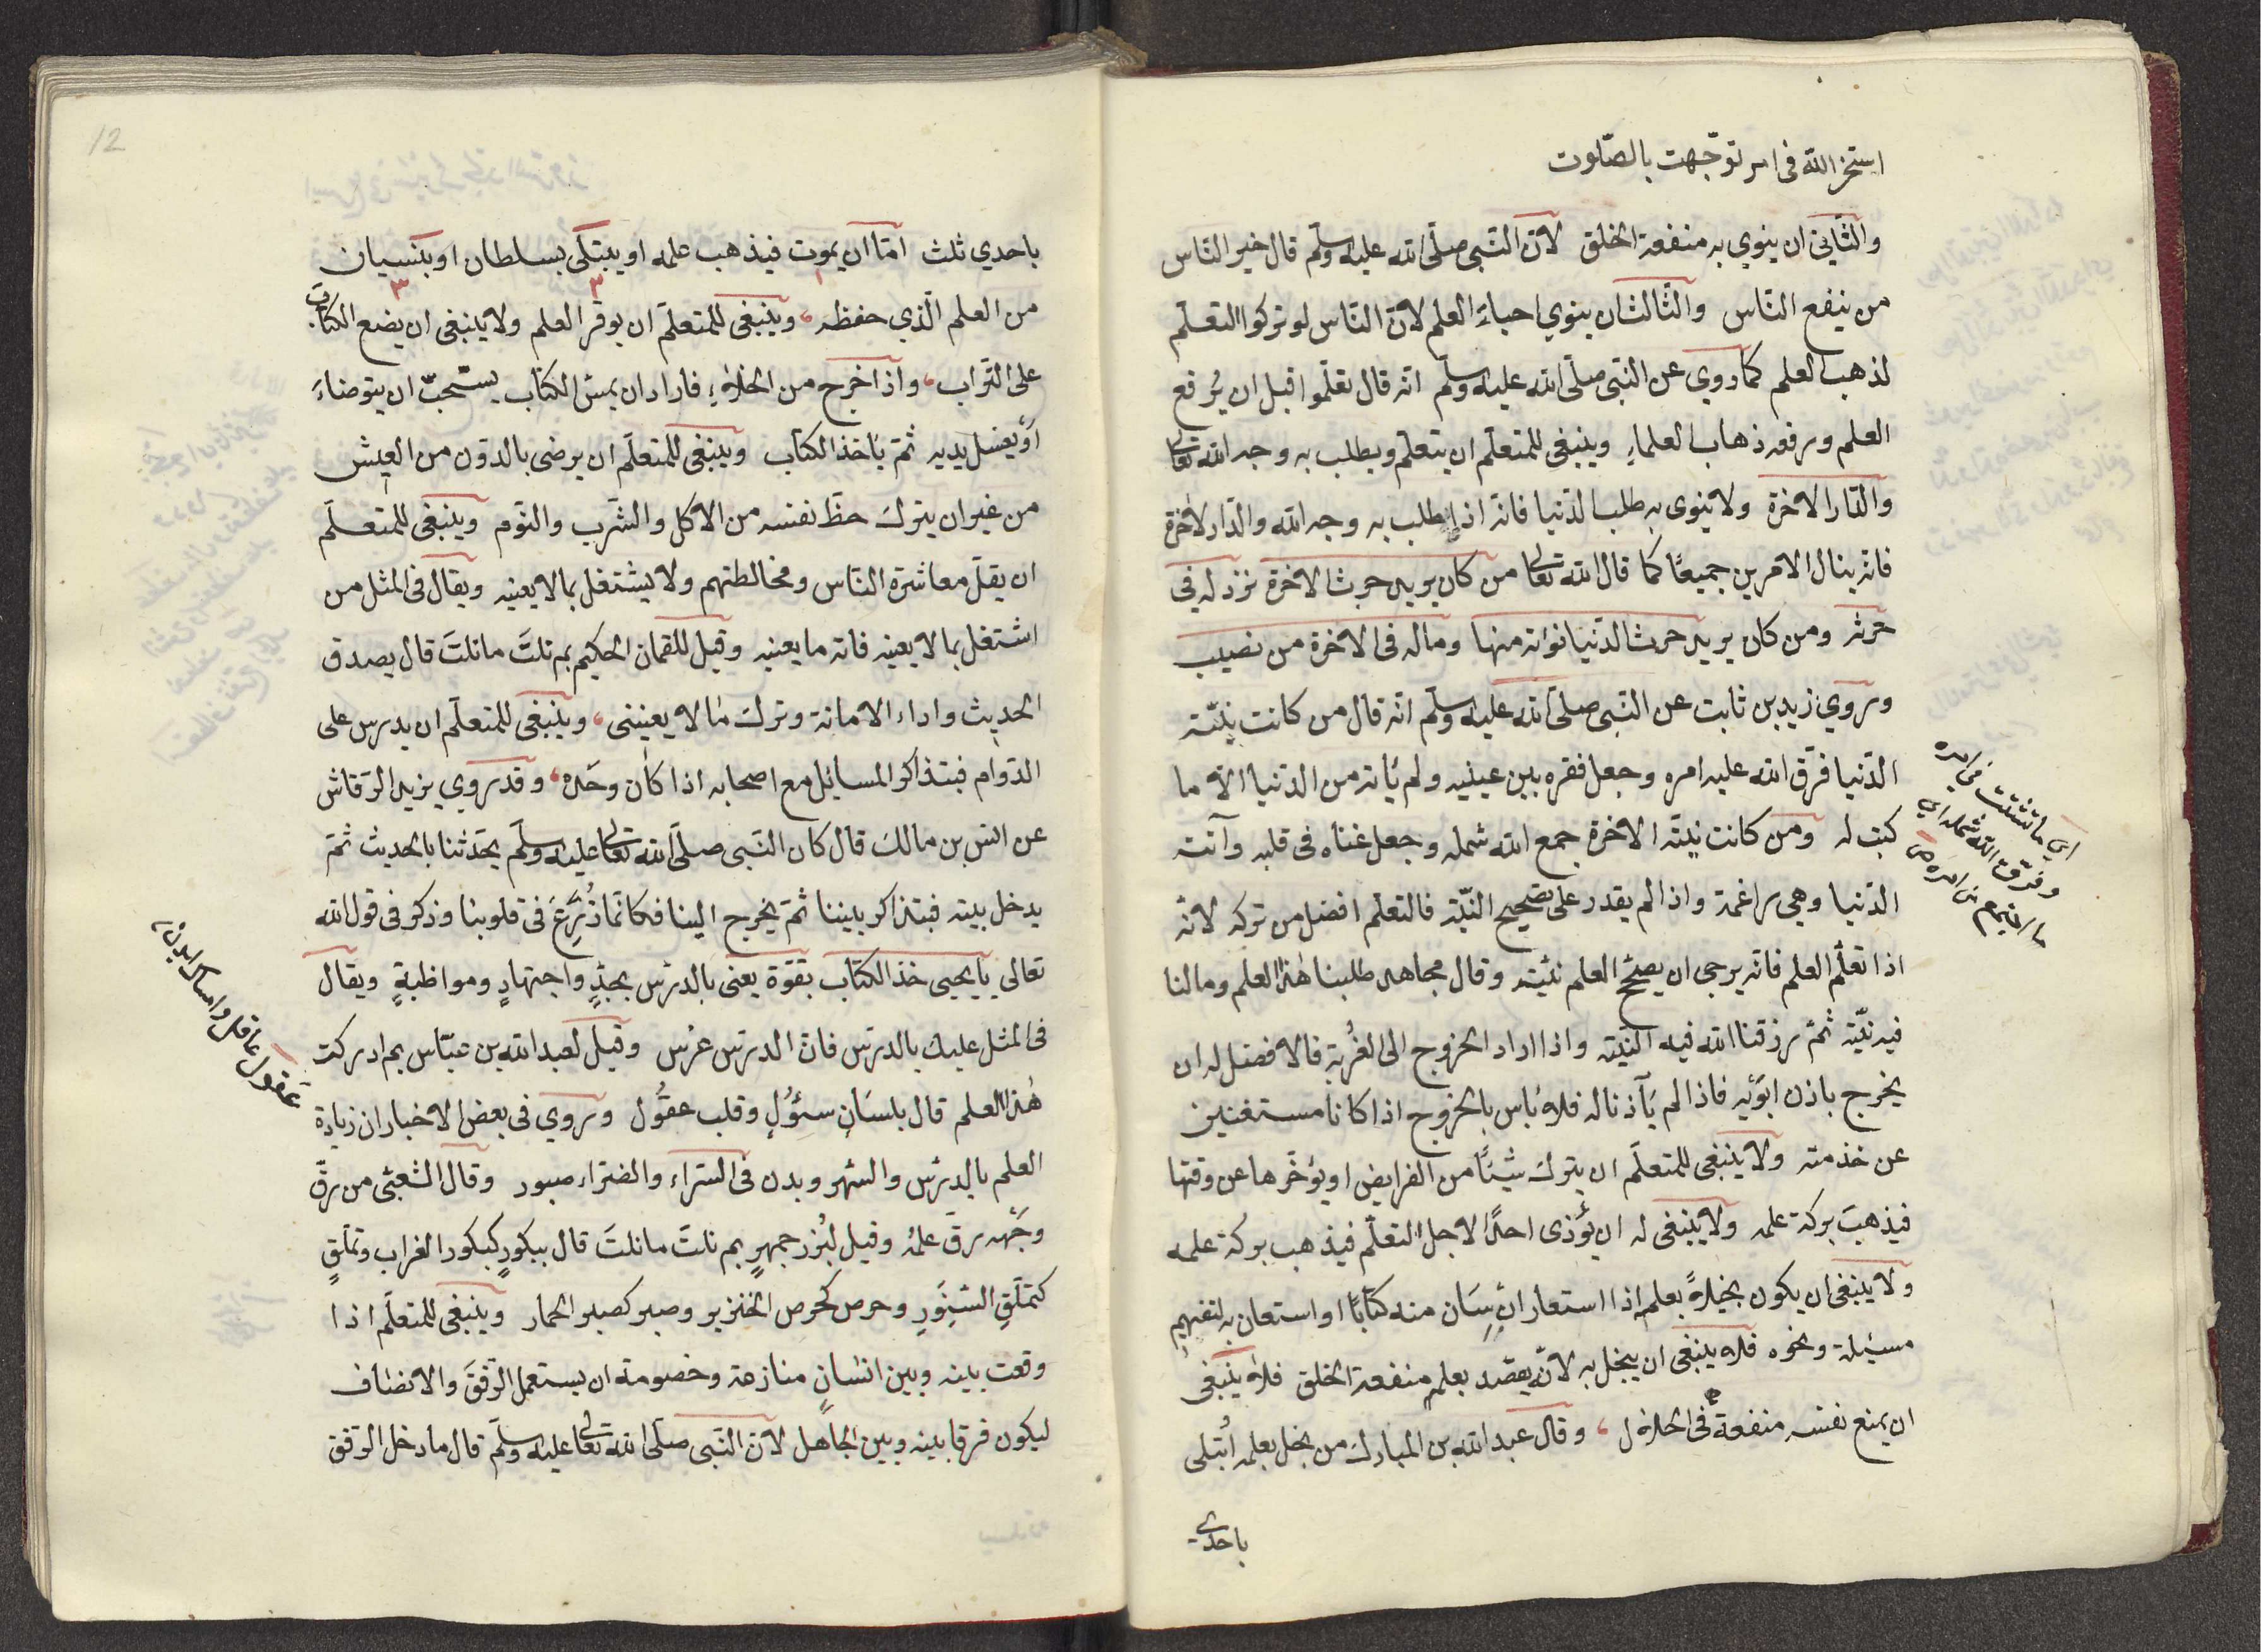 استخر الله فى امر توجّهت بالصّلوت
والثّانى ان ينوي به منفعة الخلق لانّ النّبى صلّى الله عليه وسلّم قال خير النّاس
من ينفع النّاس والثّالث ان ينوي احياء العلم لانّ النّاس لو تركوا التعلّم
لذهب العلم كما روي عن النّبى صلّى الله عليه وسلّم انّه قال تعلّموا قبل ان يُرفع
العلم ورفعه ذهاب العلماءِ وينبغى للمتعلّم ان يتعلّم ويطلب به وجه الله تعالى
والدّار الاخرة ولا ينوى به طلب الدّنيا فانّه اذا يطلب به وجه الله والدّار الاخرة
فانّه ينال الامرين جميعًا كما قال الله تعالى من كان يريد حرث الاخرة نزد له فى
حرثه ومن كان يريد حرث الدّنيا نؤته منها وماله فى الاخرة من نصيب
وروي زيد بن ثابت عن النّبى صلّى الله عليه وسلّم انّه قال من كانت نيّته
الدّنيا فرّق الله عليه امره وجعل فقره بين عينيه ولم يأته من الدّنيا الا ما
كتب له ومن كانت نيّته الاخرة جمع الله شمله وجعل غناه فى قلبه وأتته
الدّنيا وهي راغمة واذا لم يقدر على تصحيح النّيّة فالتعلّم افضل من تركه لانّه
اذا تعلّم العلم فانّه يرجى ان يصحّح العلم نيّته وقال مجاهد طلبنا هذا العلم وما لنا
فيه نيّة ثمّ رزقنا الله فيه النّيّة واذا اراد الخروج الى الغُربة فالافضل له ان
يخرج باذن ابوَيه فاذا لم يَأذنا له فلا بأس بالخروج اذا كانا مستغنين
عن خدمته ولا ينبغى للمتعلّم ان يترك شيئًا من الفرايض او يؤخّرها عن وقتها
فيذهبَ بركة علمه ولا ينبغى له ان يؤذى احدًا لاجل التعلّم فيذهب بركة علمه
ولا ينبغى ان يكون بخيلاً بعلمه اذا استعار انسَان منه كتابًا او استعان به لتفهيم
مسئلة ونحوه فلا ينبغى ان يبخل به لانّه يقصد بعلمه منفعة الخلق فلا ينبغى
ان يمنع نفسه منفعة فى الحال وقال عبد الله بن المبارك من بخل بعلمه ابُتلى
باحدى
اي ما تشتّت من امره
وفرّق الله شمله اي
ما اجتمع من امره ص
12
باحدي ثلث امّا ان يموت فيذهب علمه او يبتلى بسلطان او بنسيان
١ ٢ ٣
من العلم الّذي حفظه وينبغى للمتعلّم ان يوقّر العلم ولا ينبغى ان يضع الكتاب
على التّراب واذا خرج من الخلاءِ فاراد ان يمسّ الكتاب يستحبّ ان يتوضاءَ
اَو يغسل يديه ثمّ يأخذ الكتاب وينبغى للمتعلّم ان يرضى بالدّون من العيش
من غير ان يترك حظّ نفسه من الاكل والشّرب والنّوم وينبغى للمتعلّم
ان يقلّ معاشرة النّاس ومخالطتهم ولا يشتغل بما لا يعنيه ويقال فى المثل من
اشتغل بما لا يعنيه فاته ما يعنيه وقيل للقمان الحكيم بم نلتَ ما نلتَ قال بصدق
الحديث واداء الامانة وترك ما لا يعيننى وينبغى للمتعلّم ان يدرس على
الدّوام فيتذاكر المسايل مع اصحابه اذا كان وحَده وقد روي يزيد الرّقاش
عن انس بن مالك قال كان النّبى صلّى الله تعالى عليه وسلّم يحدّثنا بالحديث ثمّ
يدخل بيته فيتذاكر بيننا ثمّ يخرج الينا فكانّما زُرِعَ فى قلوبنا وذكر فى قول الله
تعالى يا يحيى خذ الكتاب بقوّة يعنى بالدرّس بجدٍّ واجتهادٍ ومواظبةٍ ويقال
فى المثل عليك بالدرّس فانّ الدرّس غرْس وقيل لعبد الله بن عبّاس بم ادركت
هذا العلم قال بلسَانٍ سئؤُلٍ وقلب عقوُل وروي فى بعض الاخبار ان زيادة
العلم بالدرّس والسّهر وبدن فى السّراء والضرّاء صبور وقال الشّعبى من رقّ
وجَهه رقّ علمُه وقيل لبُزرجمهرٍ بم نلتَ ما نلتَ قال ببكورٍ كبكور الغراب وتملّقٍ
كتملّقِ السّنِوَّرِ وحرص كحرص الخنزير وصبر كصبر الحمار وينبغى للمتعلّم اذا
وقعت بينه وبين انسَانٍ منازعة وخصومة ان يستعمل الرّفقَ والانصاف
ليكون فرقا بينه وبين الجاهل لانّ النّبى صلّى الله تعالى عليه وسلّم قال ما دخل الرّفق